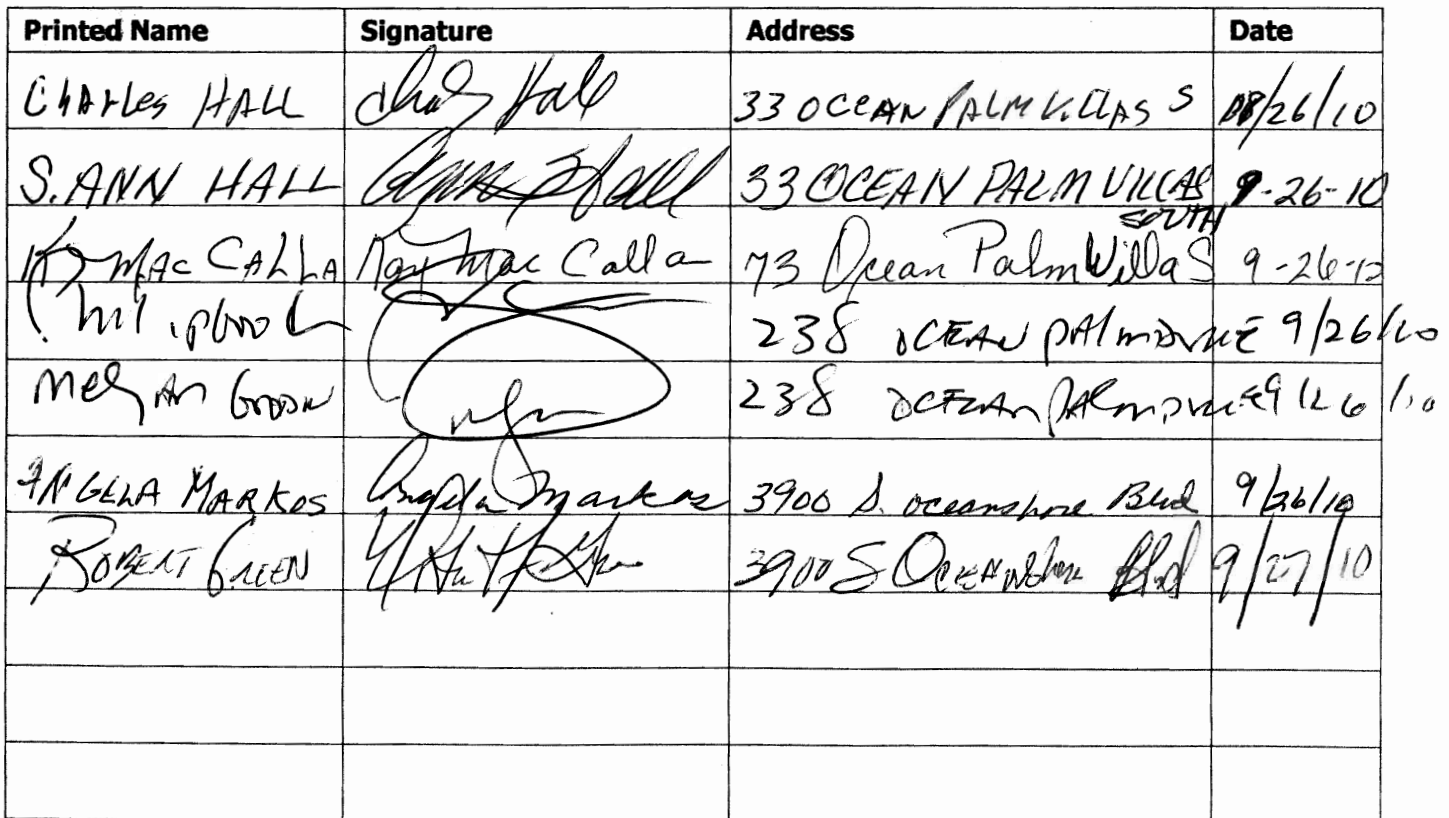 Printed Name Signature Address Date
Charles HALL Hall 33 OCEAN PALM VILLAS S /26/10
S. ANN HALL Ann Hall 33 OCEAN PALM VILLAS 9-26-10
SOUTH
MAC CALLA Kay Mac Calla 73 Ocean Palm Villa S 9-26-10
238 OCEAN PALM DRIVE 9/26/10
Megan 238 OCEAN PALM DRIVE 9/26/10
ANGELA MARKOS Angela Markos 3900 S. oceanshore Blvd 9/26/10
ROBERT GREEN 3900 S OCEANshore Blvd 9/27/10